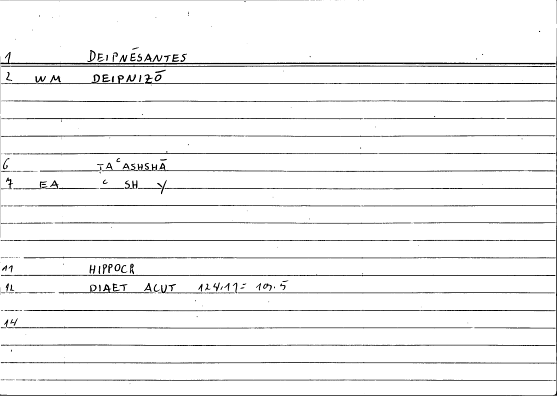 1 DEIPNĒSANTES
2 WM DEIPNIZŌ
6 ṬAᶜASHSHĀ
7 EA ᶜ SH Y
11 HIPPOCR
12 DIAET ACUT 124,11= 109.5
14